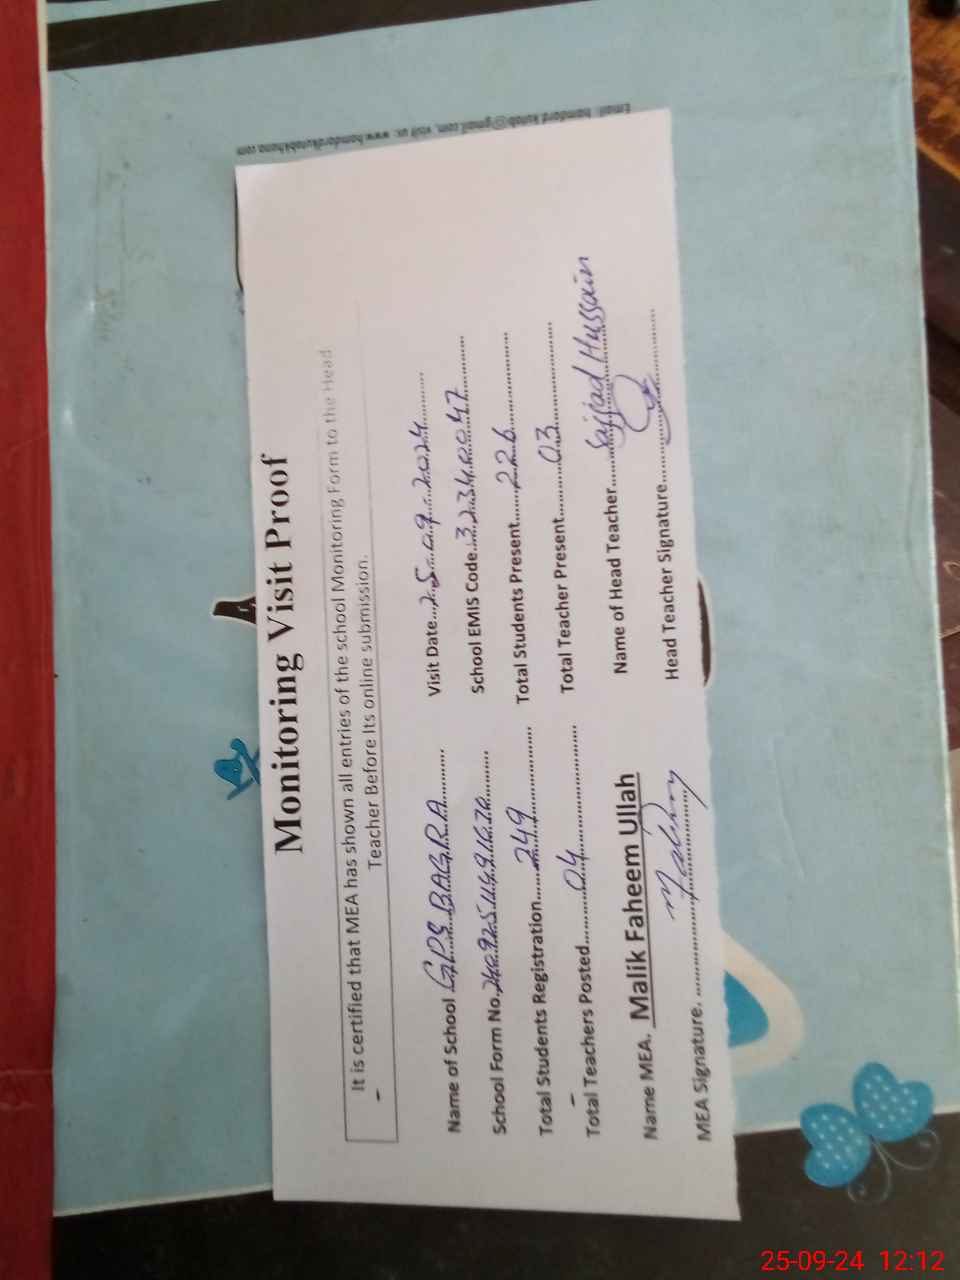 Email: hamdard.kutab@gmail.com, visit us: www.hamdardkutabkhana.com
Monitoring Visit Proof
It is certified that MEA has shown all entries of the school Monitoring Form to the Head
Teacher Before Its online submission.
Name of School GPS BAGRA Visit Date 25-09-2024
School Form No. School EMIS Code 32340047
Total Students Registration 249 Total Students Present 226
Total Teachers Posted 04 Total Teacher Present 03
Name MEA. Malik Faheem Ullah Name of Head Teacher Sajjad Hussain
MEA Signature. Head Teacher Signature
25-09-24 12:12